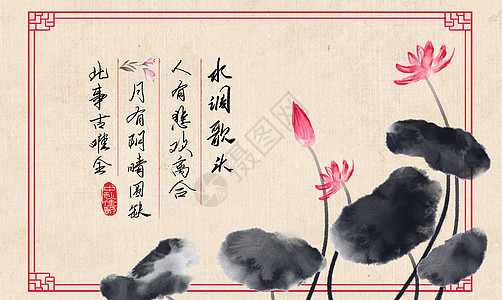 水调歌头
人有悲欢离合
月有阴晴圆缺
此事古难全